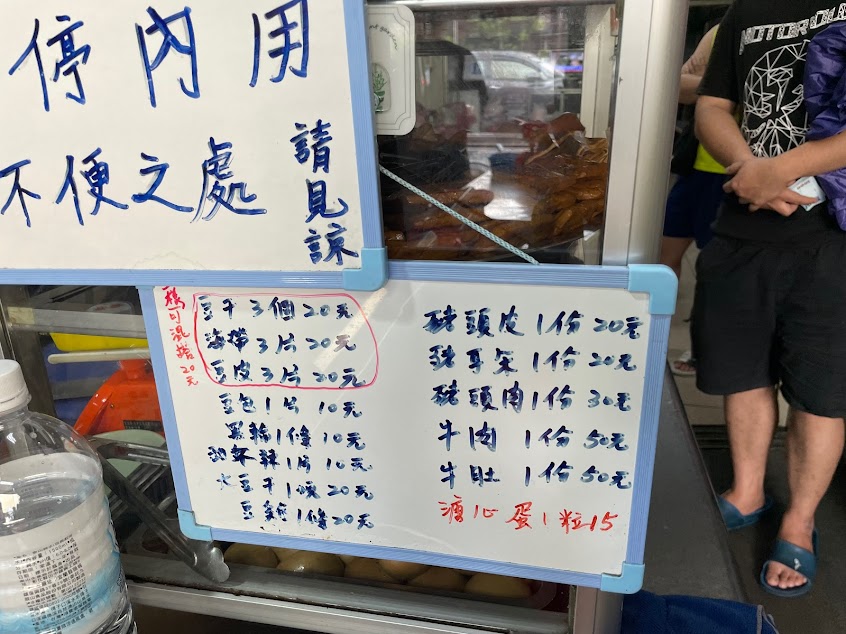 停內用
不便之處
請見諒
豆干3個20元
海帶3片20元
豆皮3片20元
豆包1片10元
黑輪1條10元
甜不辣1片10元
大豆干1塊20元
豆雞1條20元
可混搭
20元
豬頭皮1份20元
豬耳朵1份20元
豬頭肉1份30元
牛肉1份50元
牛肚1份50元
溏心蛋1粒15